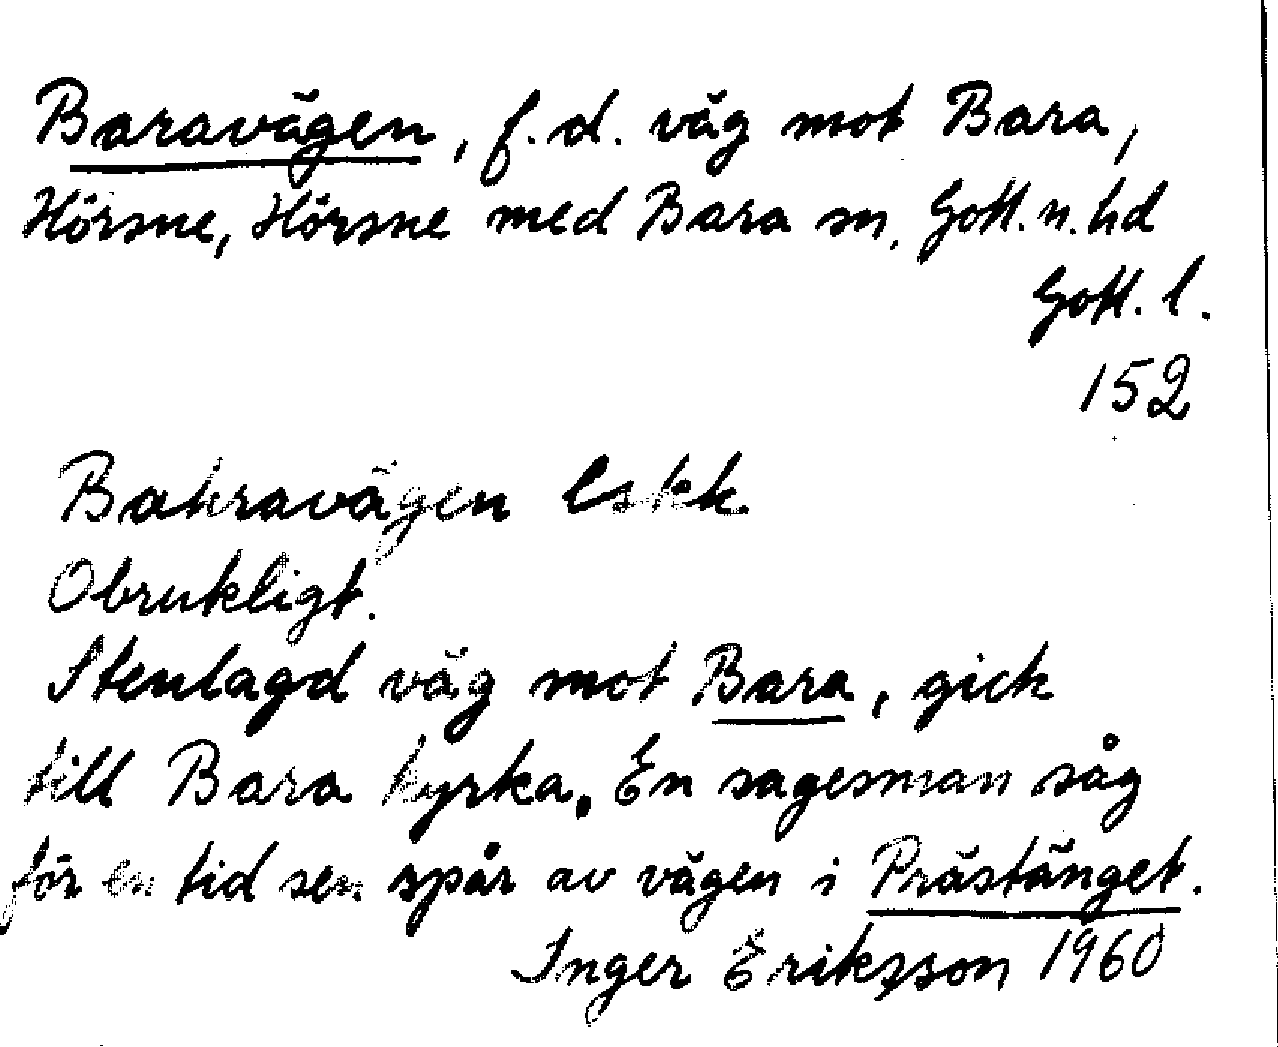 Baravägen, f.d. väg mot Bara,
Hörsne, Hörsne med Bara sn, Gotl. n. hd
Gotl. l.
152
Bahravägen Eskk
Obrukligt.
Stenlagd väg mot Bara, gick
till Bara kyrka. En sagesman såg
för en tid sen spår av vägen i Prästänget.
Inger Eriksson 1960